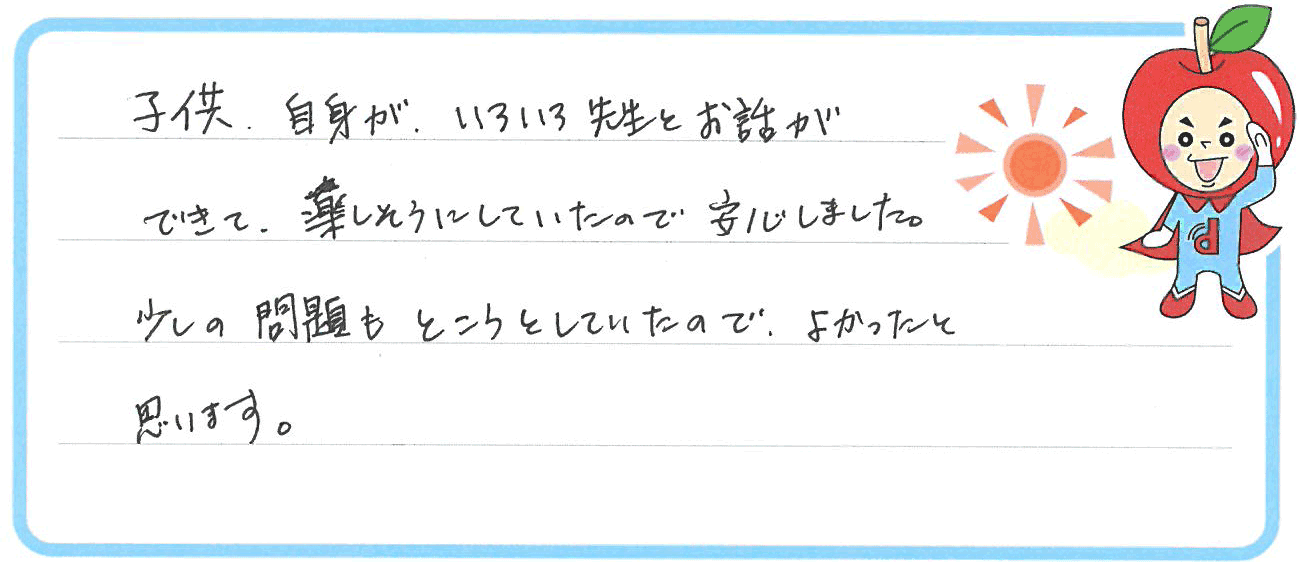 子供.自身が.いろいろ先生とお話が
できて.楽しそうにしていたので安心しました。
少しの問題もとこうとしていたので.よかったと
思います。
d